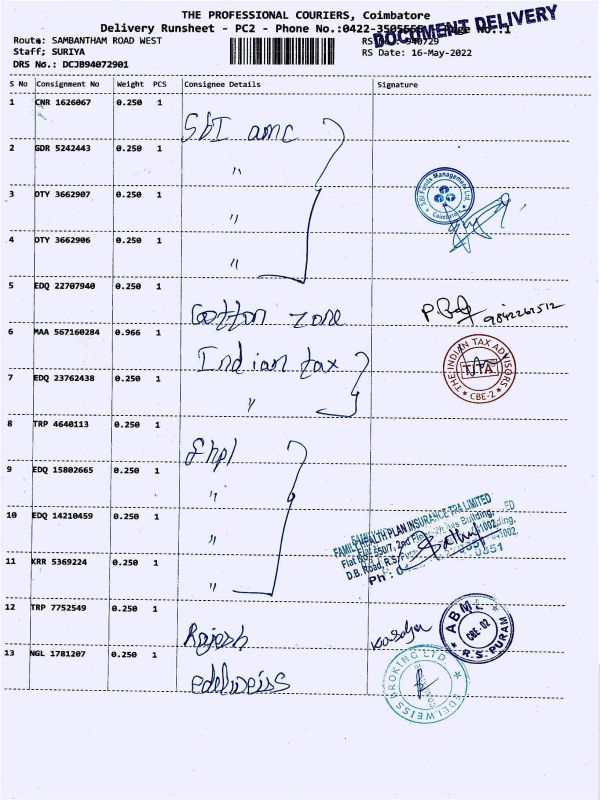 THE PROFESSIONAL COURIERS, Coimbatore
Delivery Runsheet - PC2 - Phone No.:0422-350555 Page No.:1
DOCUMENT DELIVERY
Route: SAMBANTHAM ROAD WEST
RS No.: 940729
Staff: SURIYA
RS Date: 16-May-2022
DRS No.: DCJB94072901
S No Consignment No Weight PCS Consignee Details Signature
1 CNR 1626067 0.250 1 SbI amc
2 GDR 5242443 0.250 1 "
3 DTY 3662907 0.250 1 "
SBI Funds Management Ltd. Coimbatore
4 DTY 3662906 0.250 1 "
5 EDQ 22707940 0.250 1 Cotton zone
9842262512
6 MAA 567160284 0.966 1 Indian tax
THE INDIAN TAX ADVISORS TITA CBE-2
7 EDQ 23762438 0.250 1 "
8 TRP 4640113 0.250 1 fhpl
9 EDQ 15802665 0.250 1 "
10 EDQ 14210459 0.250 1 "
FAMILY HEALTH PLAN INSURANCE TPA LIMITED
Flat No. 550/7, 2nd Building,
D.B. Road, R.S.
Ph :
11 KRR 5369224 0.250 1 "
12 TRP 7752549 0.250 1 Rajesh
ABM CBE-02 R.S.PURAM
13 NGL 1781207 0.250 1 edelweiss
EDELWEISS BROKING LTD